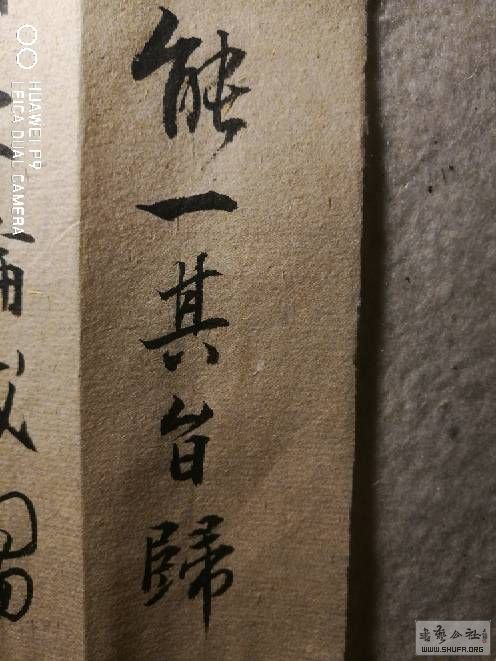 能一其旨歸
HUAWEI P9
LEICA DUAL CAMERA
書藝公社
WWW.SHUFA.ORG